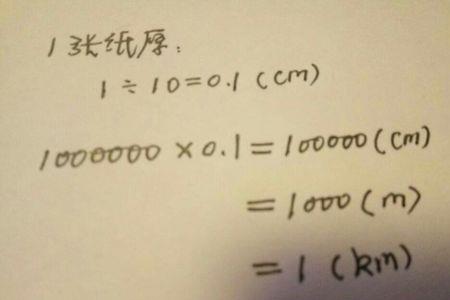 1张纸厚:
1÷10=0.1(cm)
1000000×0.1=100000(cm)
=1000(m)
=1(km)